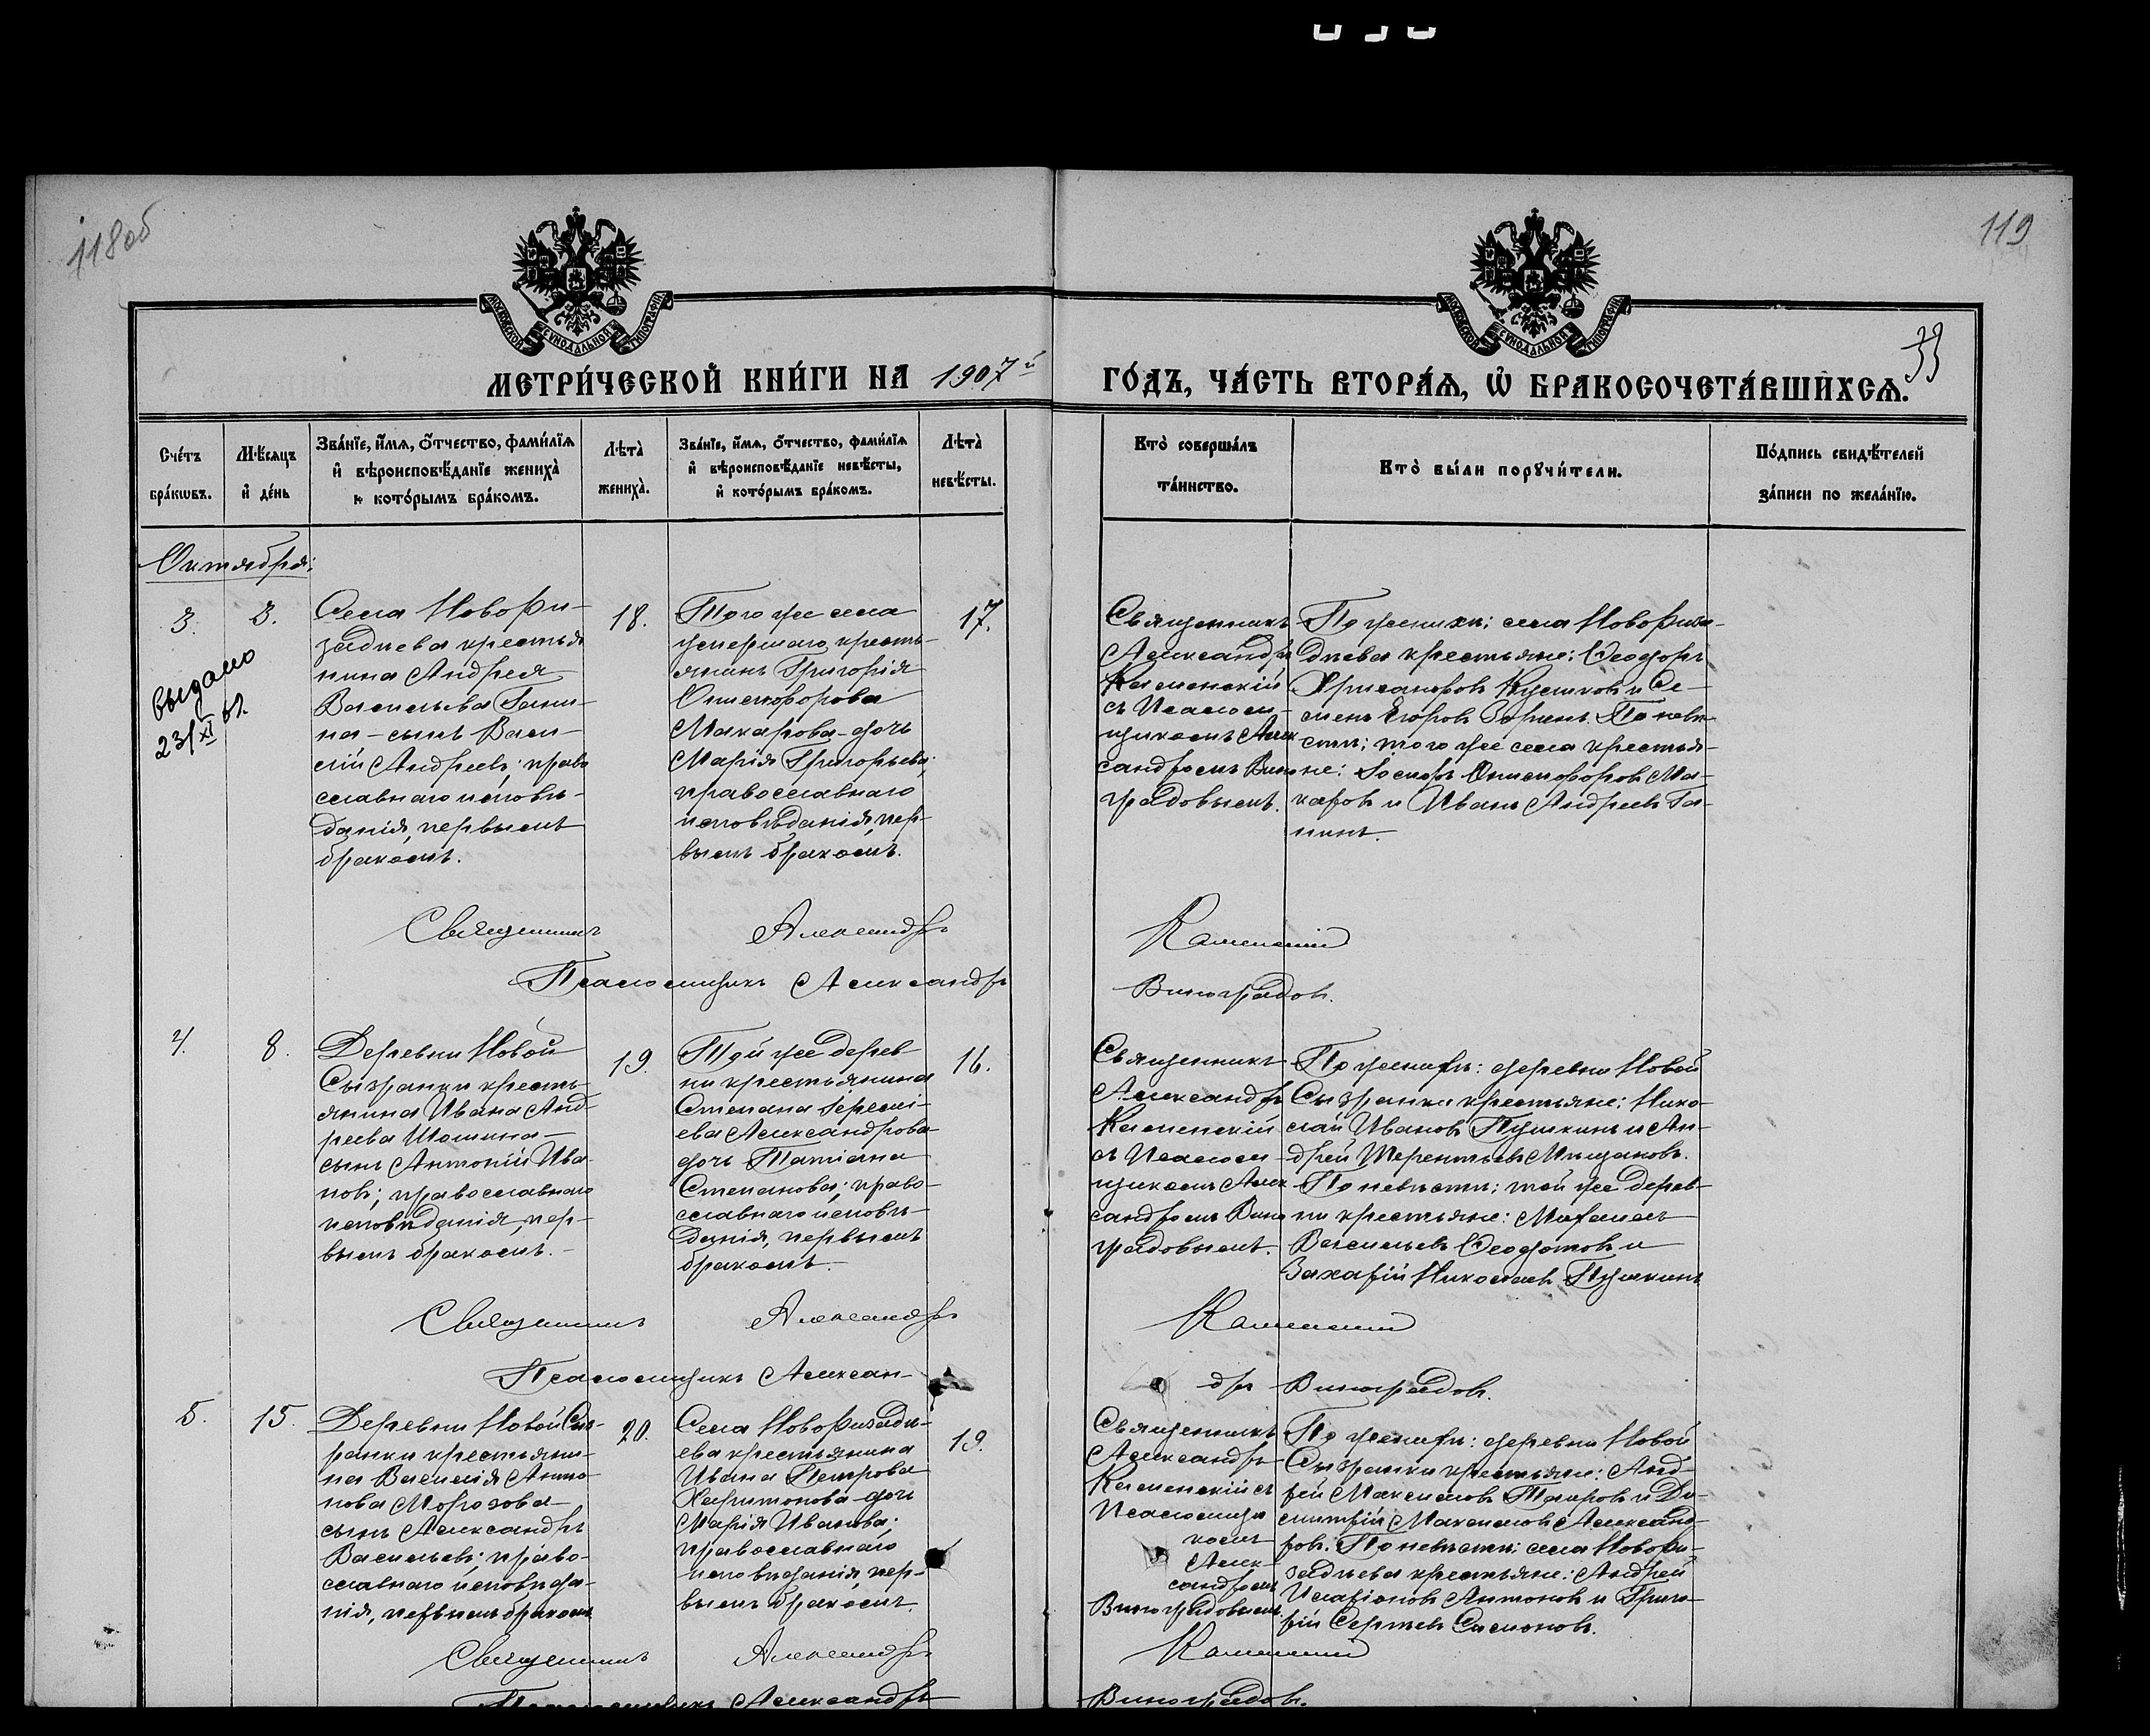 118об
119
МОСКОВСКОЙ СУНОДАЛЬНОЙ ТИПОГРАФІИ
МОСКОВСКОЙ СУНОДАЛЬНОЙ ТИПОГРАФІИ
33
МЕТРИ́ЧЕСКОЙ КНИ́ГИ НА 1907й ГО́ДЪ, ЧА́СТЬ ВТОРА́Ѧ, Ѡ҆ БРАКОСОЧЕТА́ВШИХСѦ.
Сче́тъ бра́кѡвъ.
Мѣ́сѧцъ и҆ де́нь
Зва́нїе, и҆́мѧ, ѻ҆́тчество, фами́лїѧ
и҆ вѣроисповѣ́данїе жениха̀
и҆ кото́рымъ бра́комъ.
Лѣта̀ жениха̀.
Зва́нїе, и҆́мѧ, ѻ҆́тчество, фами́лїѧ
и҆ вѣроисповѣ́данїе невѣ́сты,
и҆ кото́рымъ бра́комъ.
Лѣта̀ невѣ́сты.
Кто̀ соверша́лъ
та́инство.
Кто̀ бы́ли порꙋчи́тели.
По́дпись свидѣ́телей
за́писи по жела́нїю.
Октября:
3.
выдано
23/XI
3.
Села Новофи-
задчева крестья
нина Андрея
Васильева Гани-
на - сынъ Васи-
лій Андреевъ; право
славнаго исповѣ-
данія, первымъ
бракомъ.
18.
Того же села
умершаго кресть-
янина Григорія
Онисифорова
Макарова - дочь
Марія Григорьева;
православнаго
исповѣданія, пер-
вымъ бракомъ.
17.
Священникъ
Александръ
Каменскій
съ Псалом-
щикомъ Алек
сандромъ Вино
градовымъ.
По женихѣ: села Новофиза-
дчева крестьяне: Ѳеодоръ
Хрисанфовъ Кузнецовъ и Се-
менъ Егоровъ Зоринъ. По невѣ-
стѣ: того же села крестья-
не: Іосифъ Онисифоровъ Ма-
каровъ и Иванъ Андреевъ Га-
нинъ.
Священникъ Александръ Каменскій
Псаломщикъ Александръ Виноградовъ.
4.
8.
Деревни Новой
Сызранки кресть-
янина Ивана Анд-
реева Шошина -
сынъ Антоній Ива-
новъ; православнаго
исповѣданія, пер-
вымъ бракомъ.
19.
Той же дерев
ни крестьянина
Степана Іеремі-
ева Александрова
дочь Татіана
Степанова; право-
славнаго исповѣ-
данія, первымъ
бракомъ.
16.
Священникъ
Александръ
Каменскій
съ Псалом-
щикомъ Алек
сандромъ Вино
градовымъ.
По женихѣ: деревни Новой
Сызранки крестьяне: Нико-
лай Ивановъ Пушкинъ и Ан-
дрей Терентьевъ Мѣщановъ.
По невѣстѣ: той же дерев-
ни крестьяне:
Васильевъ Ѳедотовъ и
Захарій Николаевъ Пушкинъ
Священникъ Александръ Каменскій
Псаломщикъ Алексан-дръ Виноградовъ.
5.
15.
Деревни Новой Сыз-
ранки крестьяни-
на Василія Анто-
нова Морозова -
сынъ Александръ
Васильевъ; право-
славнаго исповѣда-
нія, первымъ бракомъ
20.
Села Новофизадч-
ева крестьянина
Ивана Петрова
Харитонова - дочь
Марія Иванова;
православнаго
исповѣданія, пер-
вымъ бракомъ.
19.
Священникъ
Александръ
Каменскій съ
Псаломщи
комъ
Алек-
сандромъ
Виноградовымъ.
По женихѣ: деревни Новой
Сызранки крестьяне: Анд-
рей Максимовъ Таировъ и Ди-
митрій Максимовъ Александ-
ровъ. По невѣстѣ: села Новофи-
задчева крестьяне: Андрей
Иларіоновъ Антоновъ и Григо-
рій Сергѣевъ Симоновъ.
Священникъ Александръ Каменскій
Псаломщикъ Александръ Виноградовъ.